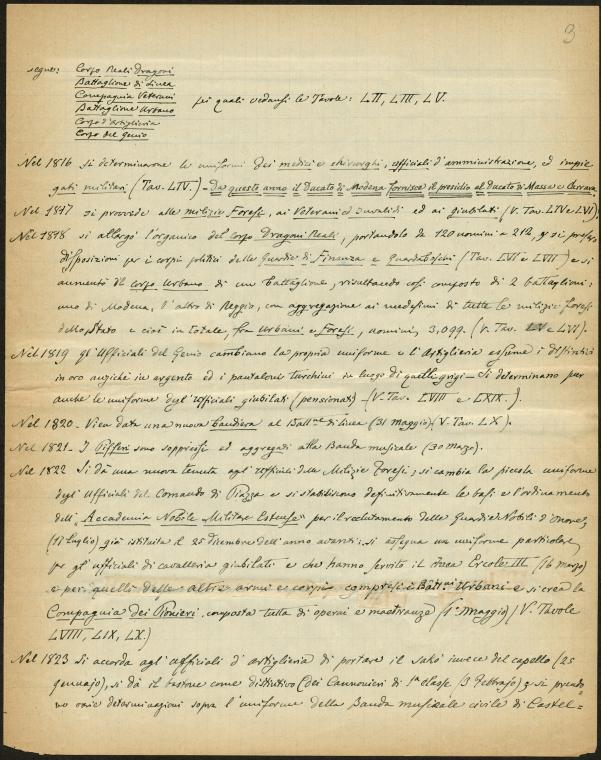 3
segue: Corpo Reali Dragoni
Battaglione di Linea
Compagnia Veterani
Battaglione Urbano
Corpo d'Artiglieria
Corpo del Genio
pei quali vedansi le Tavole: LII, LIII, LV.
Nel 1816 si determinarono le uniformi dei medici e chirurghi, uffiziali d'amministrazione, ed impie
gati militari (Tav. LIV.) – Da questo anno il Ducato di Modena fornisce il presidio al Ducato di Massa e Carrara.
Nel 1817 si provvide alle milizie Foresi, ai Veterani ed invalidi ed ai giubilati (V. Tav. LIV e LVI)
Nel 1818 si allargò l'organico del Corpo Dragoni Reali, portandolo da 120 uomini a 212, si presero
disposizioni per i corpi politici delle Guardie di Finanza e Guardaboschi (Tav. LVI e LVII) e si
aumentò il corpo Urbano di un battaglione, risultando così composto di 2 battaglioni:
uno di Modena, l'altro di Reggio, con aggregazione ai medesimi di tutte le milizie foresi
dello Stato e cioè in totale, fra Urbani e foresi, uomini, 3,099. (V. Tav. LVI).
Nel 1819 gl'Uffiziali del Genio cambiano la propria uniforme e l'Artiglieria assume i distintivi
in oro anziché in argento ed i pantaloni turchini in luogo di quelli grigi – Si determinano pur
anche le uniforme degl'uffiziali giubilati (pensionati) – (V. Tav. LVIII e LXIX.).
Nel 1820 – Vien data una nuova bandiera al Batt.ne di Linea (31 maggio) (V. Tav. LX).
Nel 1821 – I Pifferi sono soppressi ed aggregati alla Banda musicale (30 Marzo).
Nel 1822 Si dà una nuova tenuta agl'uffiziali delle Milizie Foresi; si cambia la piccola uniforme
degl'Uffiziali del Comando di Piazza e si stabiliscono definitivamente le basi e l'ordinamento
dell'„Accademia Nobile Militare Estense" per il reclutamento delle Guardie Nobili d'onore,
(17 Luglio) già istituita il 25 Dicembre dell'anno avanti: si assegna un uniforme particolare
per gl'uffiziali di cavalleria giubilati e che hanno servito il Duca Ercole III (16 marzo)
e per quelli delle altre armi e corpi compresi i Batt.ni Urbani e si crea la
Compagnia dei Pionieri, composta tutta di operai e maestranze (1° Maggio) (V. Tavole
LVIII, LIX, LX.)
Nel 1823 Si accorda agl'uffiziali d'artiglieria di portare il sakò invece del capello (25
gennajo), si dà il bastone come distintivo (dei Cannonieri di 1a classe (3 Febbrajo) e si prendo
no varie determinazioni sopra l'uniforme della Banda musicale civile di Castel=